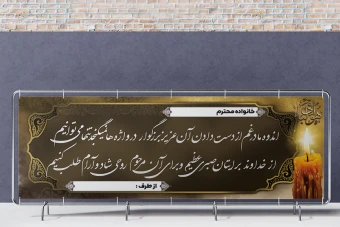 خانواده محترم
اندوه ما در غم از دست دادن آن عزیز بزرگوار در واژه ها نمیگنجد تنها می توانیم
از خداوند برایتان صبری عظیم و برای آن مرحوم روحی شاد و آرام طلب کنیم
از طرف :